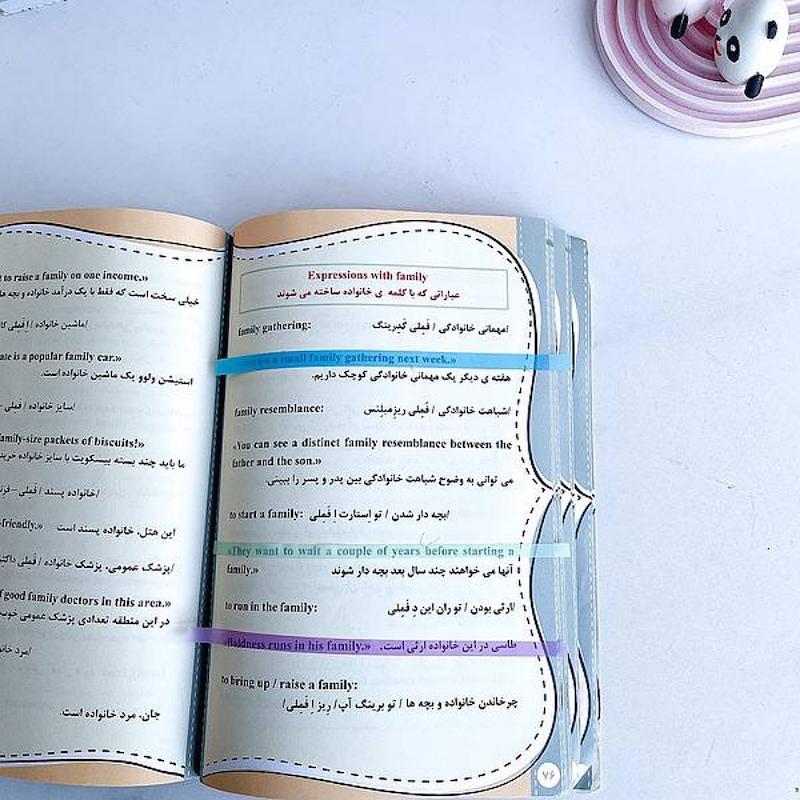 to raise a family on one income.»
خیلی سخت است که فقط با یک درآمد خانواده و بچه ها
/ماشین خانواده / اِ فَمِلی
is a popular family car.»
استیشن ولوو یک ماشین خانواده است.
/سایز خانواده / فَمِلی –
family-size packets of biscuits!»
ما باید چند بسته بیسکویت با سایز خانواده
/خانواده پسند / فَمِلی–
friendly.» این هتل، خانواده پسند است
/پزشک عمومی، پزشک خانواده / فَمِلی
good family doctors in this area.»
در این منطقه تعدادی پزشک عمومی
/مرد
جان، مرد خانواده است.
Expressions with family
عباراتی که با کلمه ی خانواده ساخته می شوند
family gathering: /مهمانی خانوادگی / فَمِلی گَدِرینگ
a small family gathering next week.»
هفته ی دیگر یک مهمانی خانوادگی کوچک داریم.
family resemblance: /شباهت خانوادگی / فَمِلی ریزمبلِنس
«You can see a distinct family resemblance between the
father and the son.»
می توانی به وضوح شباهت خانوادگی بین پدر و پسر را ببینی.
to start a family: /بچه دار شدن / تو اِستارت اِ فَمِلی
«They want to wait a couple of years before starting a
family.» آنها می خواهند چند سال بعد بچه دار شوند
to run in the family: /ارثی بودن / تو ران این دِ فَمِلی
«Baldness runs in his family.» طاسی در این خانواده ارثی است.
to bring up / raise a family:
چرخاندن خانواده و بچه ها / تو برینگ آپ/ رِیز اِ فَمِلی/
۷۶